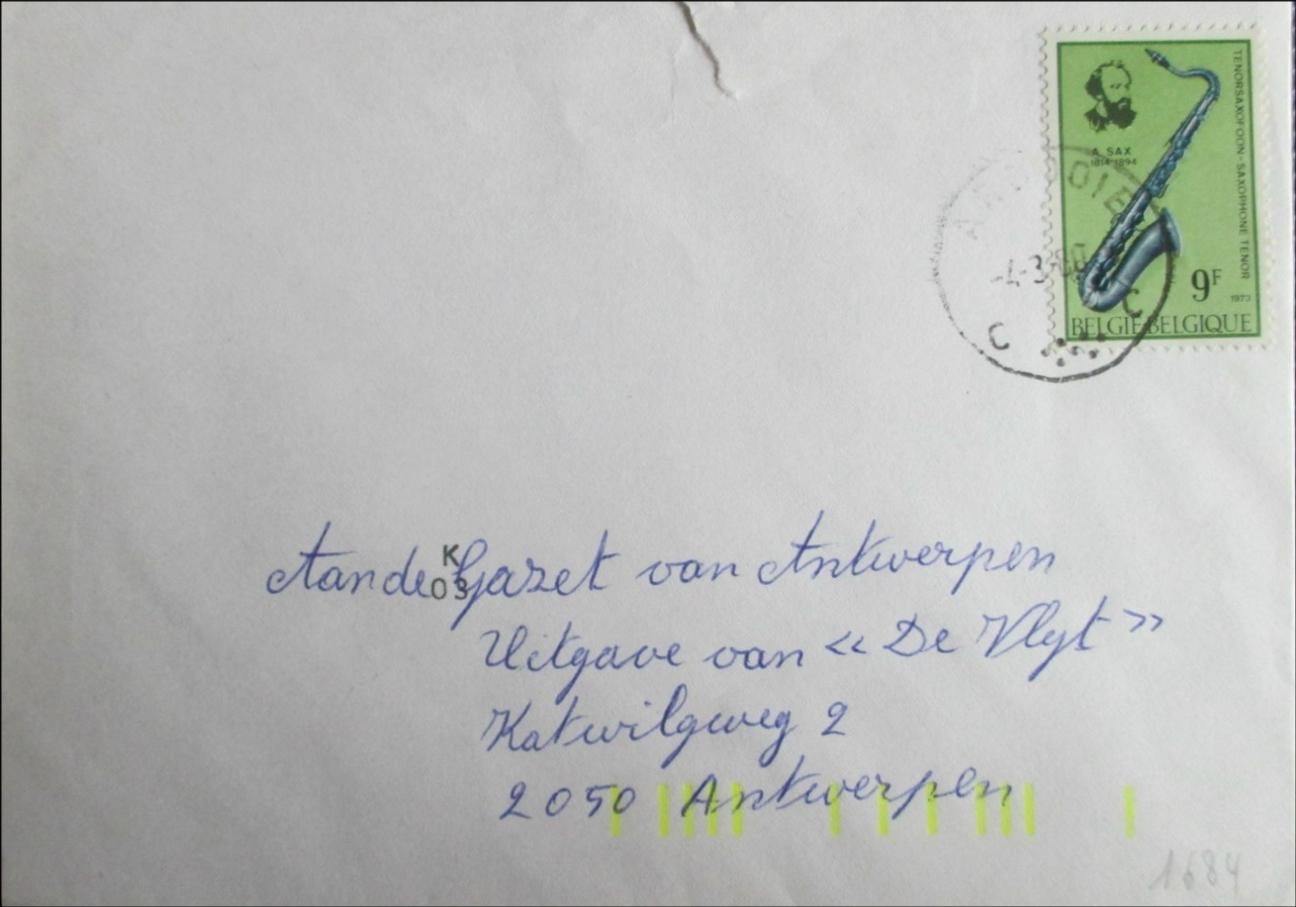 A. SAX
1814-1894
TENORSAXOFOON - SAXOPHONE TENOR
9F
1973
BELGIE BELGIQUE
-4-3-80
C C
K
03
Aan de Gazet van Antwerpen
Uitgave van « De Vlyt »
Katwilgweg 2
2050 Antwerpen
1684